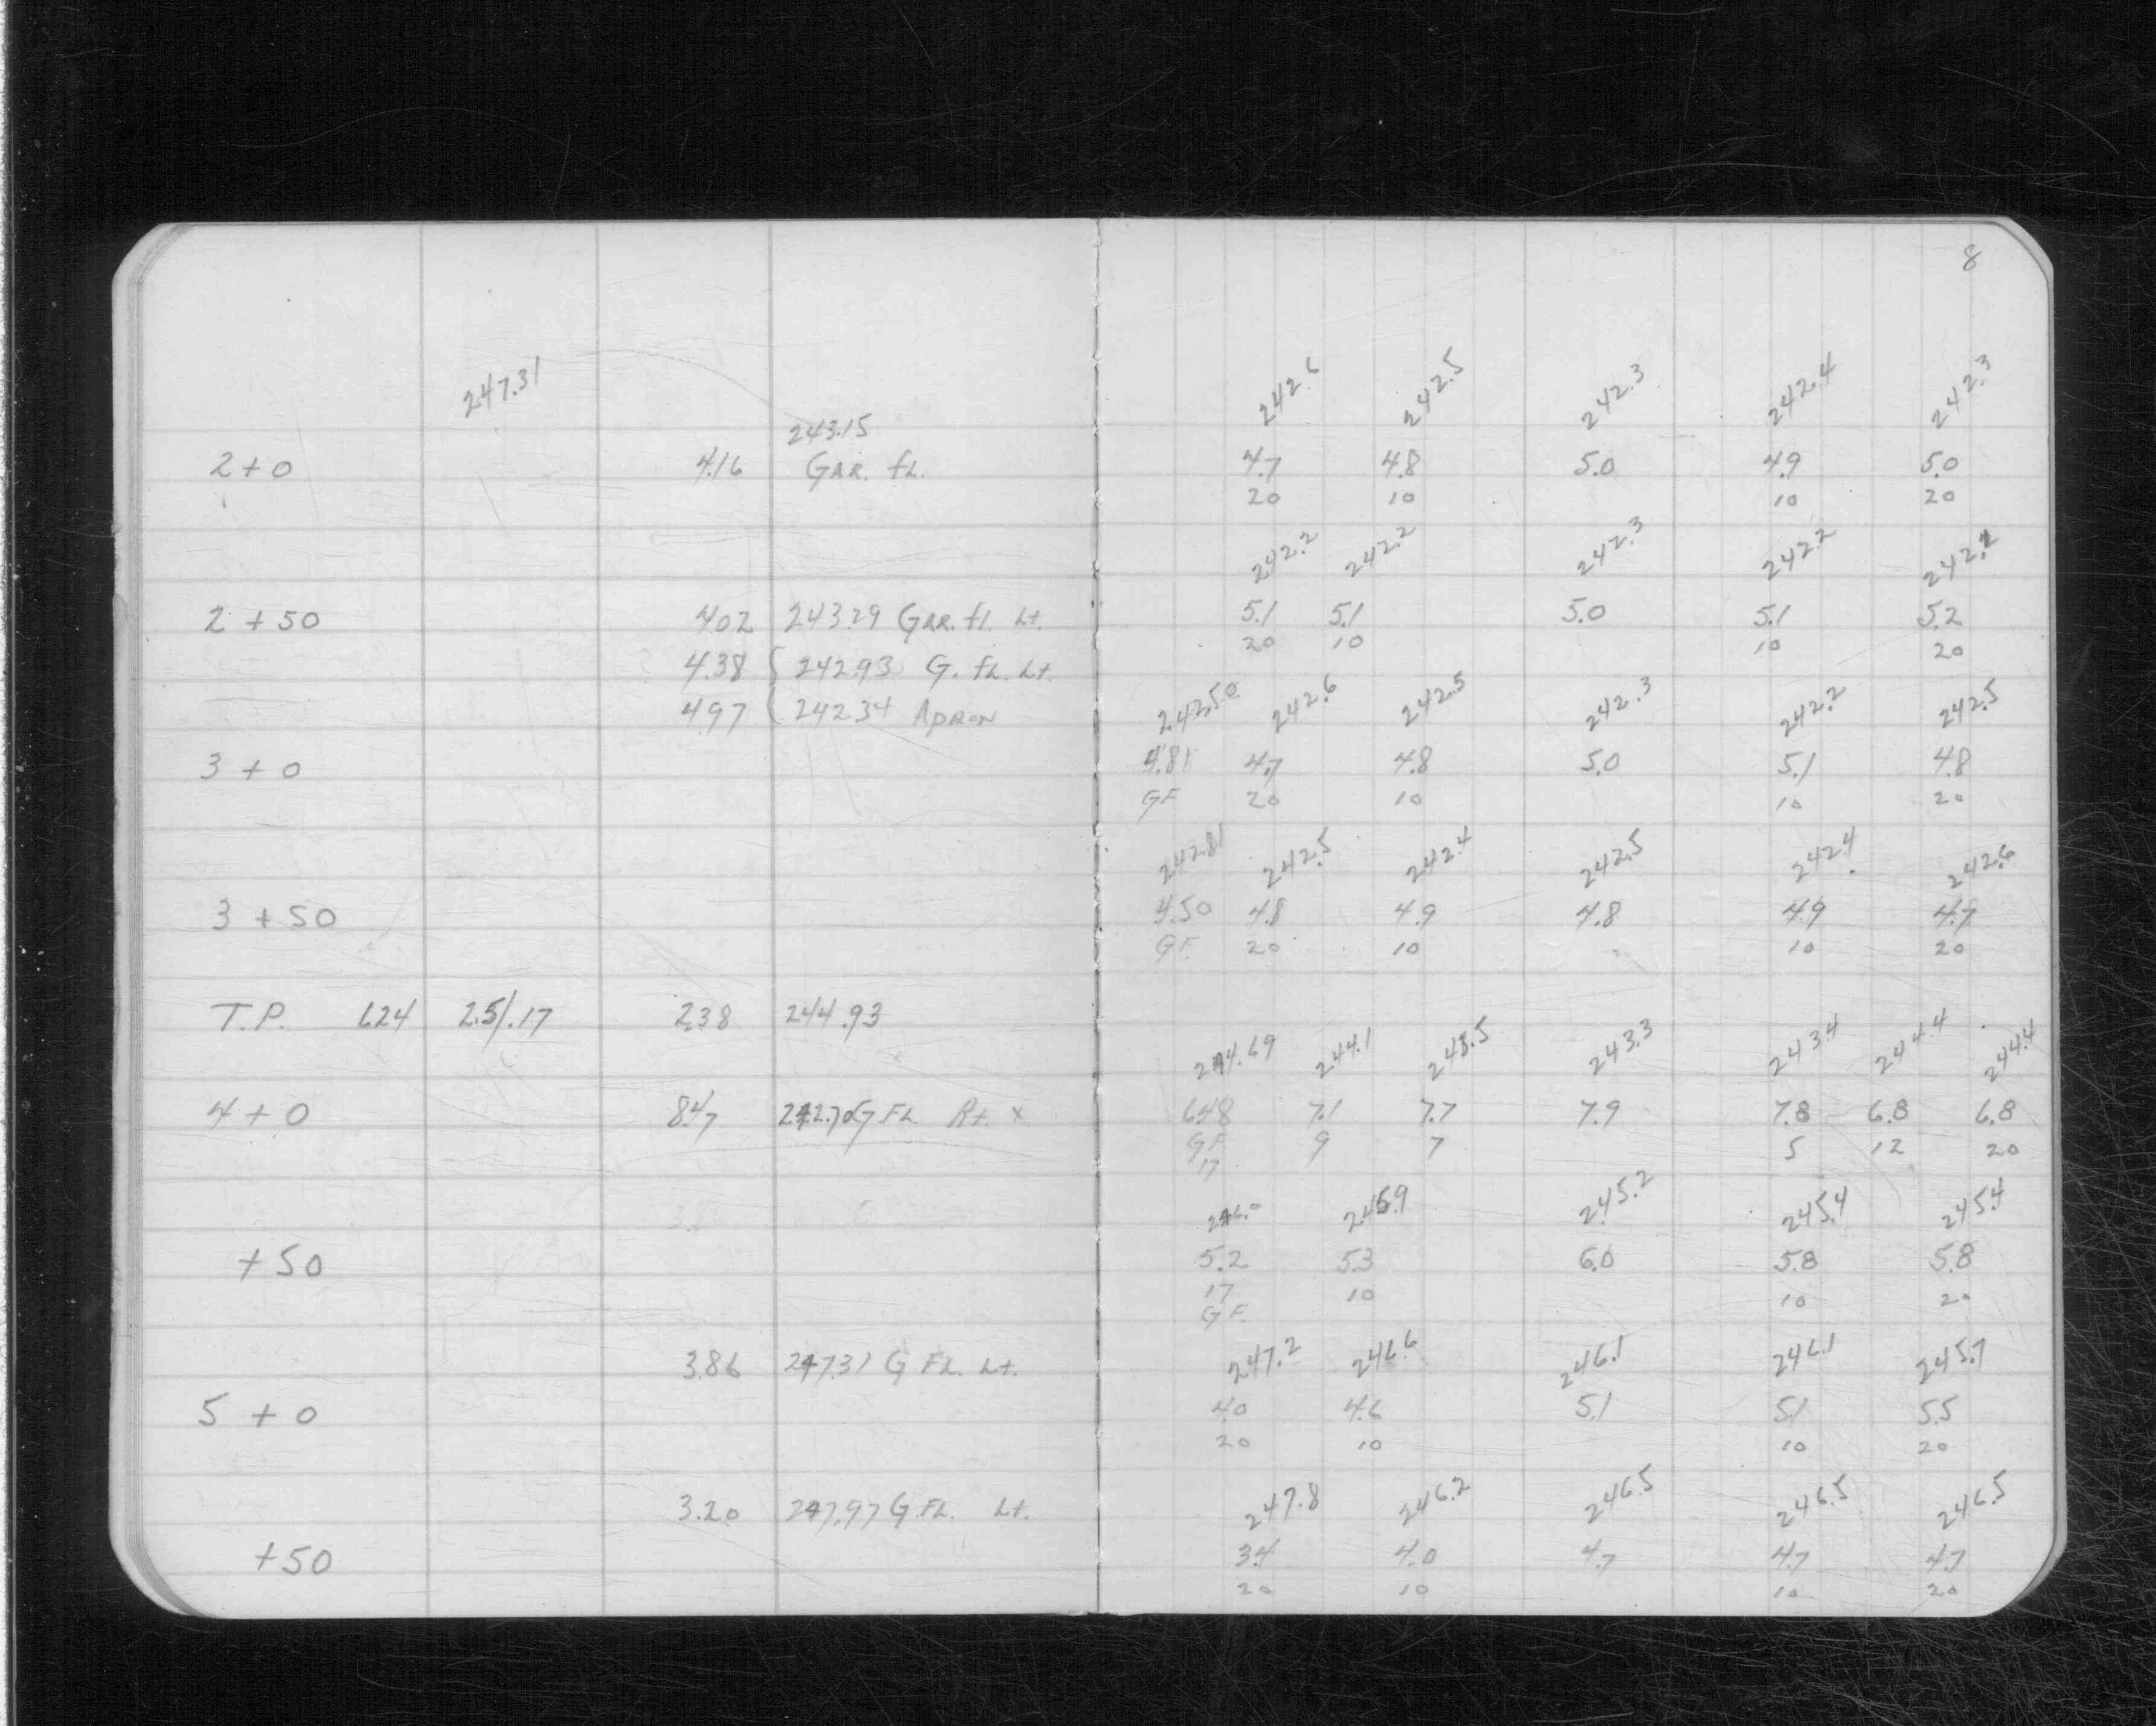 8
247.31 242.6 242.5 242.3 242.4 242.3
243.15
2+0 4.16 GAR. fL. 4.7 4.8 5.0 4.9 5.0
20 10 10 20
242.2 242.2 242.3 242.2
2+50 4.02 243.29 GAR. fl. Lt. 5.1 5.1 5.0 5.1 5.2
20 10 10 20
4.38 { 242.93 G. fL. Lt.
4.97 242.34 APRON 242.50 242.6 242.5 242.3 242.2 242.5
3+0 4.81 4.7 4.8 5.0 5.1 4.8
GF 20 10 10 20
242.81 242.5 242.4 242.5 242.4 242.6
3+50 4.50 4.8 4.9 4.8 4.9 4.7
GF. 20 10 10 20
T.P. 6.24 251.17 2.38 244.93
244.69 244.1 243.5 243.3 243.4 244.4 244.4
4+0 8.47 242.70 G FL Rt. x 6.48 7.1 7.7 7.9 7.8 6.8 6.8
GF 9 7 5 12 20
17
246.0 245.9 245.2 245.4 245.4
+50 5.2 5.3 6.0 5.8 5.8
17 10 10 20
GF.
3.86 247.31 G FL. Lt. 247.2 246.6 246.1 246.1 245.7
5+0 4.0 4.6 5.1 5.1 5.5
20 10 10 20
3.20 247.97 G.FL. Lt. 247.8 246.2 246.5 246.5 246.5
+50 3.4 4.0 4.7 4.7 4.7
20 10 10 20